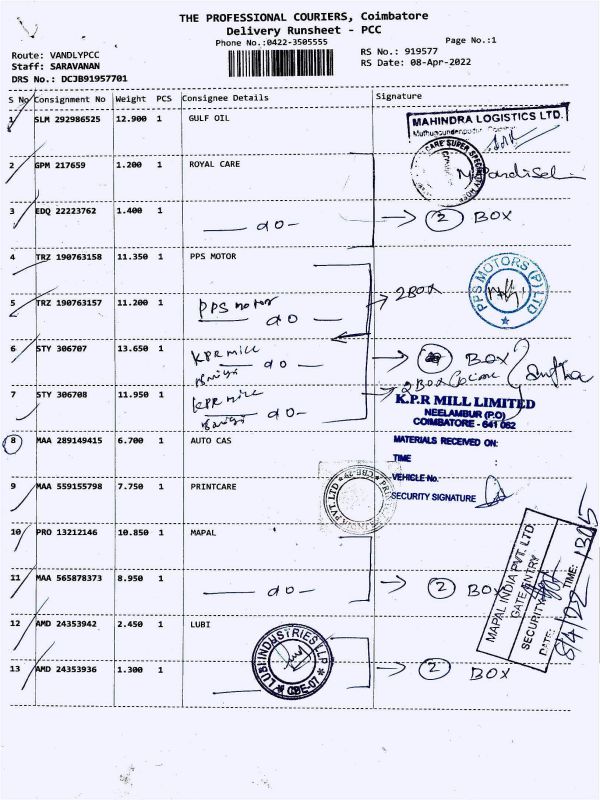 THE PROFESSIONAL COURIERS, Coimbatore
Delivery Runsheet - PCC
Phone No.:0422-3505555
Page No.:1
Route: VANDLYPCC
RS No.: 919577
Staff: SARAVANAN
RS Date: 08-Apr-2022
DRS No.: DCJB91957701
S No Consignment No Weight PCS Consignee Details Signature
1 SLM 292986525 12.900 1 GULF OIL
MAHINDRA LOGISTICS LTD.
2 GPM 217659 1.200 1 ROYAL CARE
CARE SUPER
3 EDQ 22223762 1.400 1 do 2 BOX
4 TRZ 190763158 11.350 1 PPS MOTOR
PPS MOTORS (P) LTD
5 TRZ 190763157 11.200 1 PPS motor
do
2 BOX
6 STY 306707 13.650 1 KPR mill
do
BOX
2 BOX
7 STY 306708 11.950 1 KPR mill
do
K.P.R MILL LIMITED
NEELAMBUR (P.O)
COIMBATORE - 641 062
8 MAA 289149415 6.700 1 AUTO CAS
MATERIALS RECEIVED ON:
TIME
VEHICLE No.
SECURITY SIGNATURE
9 MAA 559155798 7.750 1 PRINTCARE
10 PRO 13212146 10.850 1 MAPAL
11 MAA 565878373 8.950 1 do 2 BOX
MAPAL INDIA PVT. LTD.
GATE ENTRY
SECURITY
DATE: 8/4/22 TIME:
12 AMD 24353942 2.450 1 LUBI
LUBI INDUSTRIES LLP
CBE-07
13 AMD 24353936 1.300 1 2 BOX